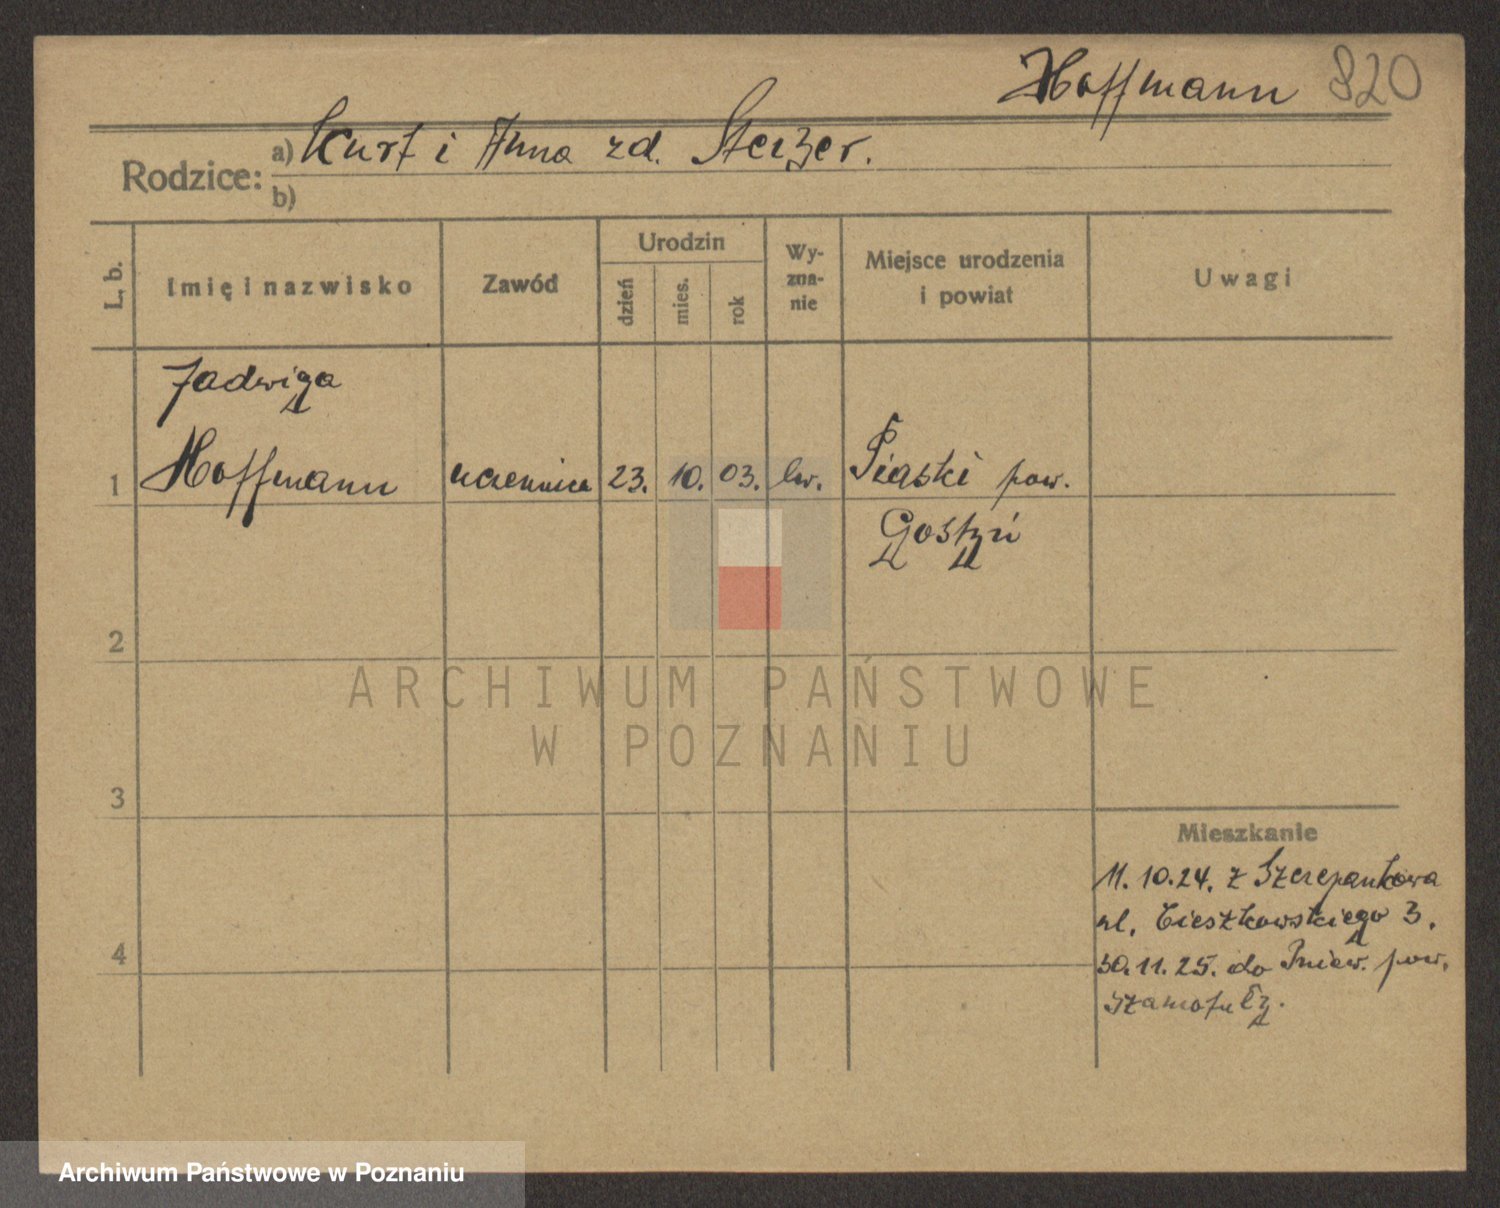 Hoffmann 820
a) Kurt i Anna zd. Sterzer.
Rodzice:
b)
L. b.
Imię i nazwisko
Zawód
Urodzin
dzień
mies.
rok
Wy-
zna-
nie
Miejsce urodzenia
i powiat
Uwagi
Jadwiga
1 Hoffmann uczennica 23. 10. 03. ew. Piaski pow.
Gostyń
2
ARCHIWUM PAŃSTWOWE
W POZNANIU
3
Mieszkanie
11. 10.24. z Szczepankowa
ul. Cieszkowskiego 3.
30.11.25. do Pniew. pow.
4
Szamotuły.
Archiwum Państwowe w Poznaniu